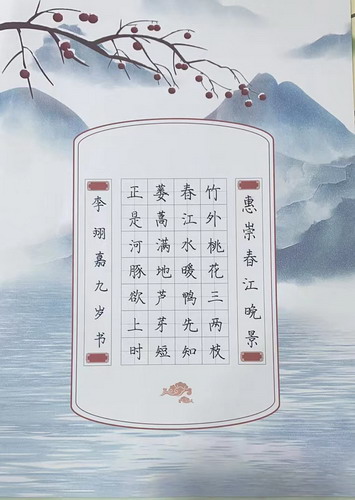 惠崇春江晚景
竹外桃花三两枝
春江水暖鸭先知
蒌蒿满地芦芽短
正是河豚欲上时
李翊嘉九岁书